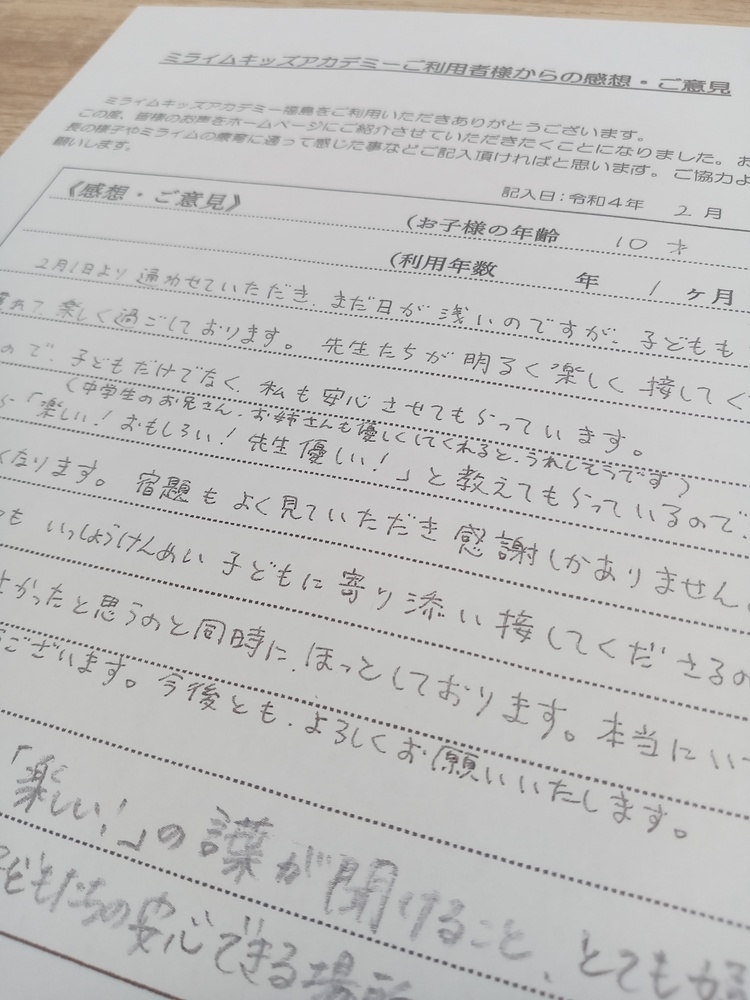 ミライムキッズアカデミーご利用者様からの感想・ご意見
ミライムキッズアカデミー福島をご利用いただきありがとうございます。
この度、皆様のお声をホームページにご紹介させていただきたくことになりました。お
長の様子やミライムの療育に通って感じた事などご記入頂ければと思います。ご協力よ
願いします。
記入日：令和４年 2 月
《感想・ご意見》
（お子様の年齢 10 才
（利用年数 年 1 ヶ月
2月1日より通わせていただき、まだ日が浅いのですが、子どもも
れて楽しく過ごしております。先生たちが明るく楽しく接してく
ので、子どもだけでなく、私も安心させてもらっています。
（中学生のお兄さん、お姉さんも優しくしてくれると、うれしそうです）
「楽しい！おもしろい！先生優しい！」と教えてもらっているので、
くなります。宿題もよく見ていただき感謝しかありません。
も いっしょうけんめい子どもに寄り添い接してくださるの
よかったと思うのと同時に、ほっとしております。本当にいつ
うございます。今後とも、よろしくお願いいたします。
「楽しい！」の言葉が聞けること、とても
子どもたちの安心できる場所